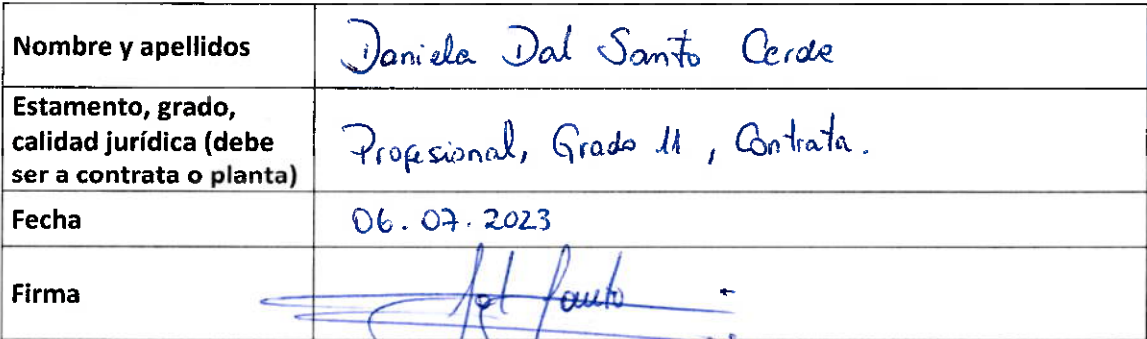 Nombre y apellidos
Daniela Dal Santo Cerda
Estamento, grado,
calidad jurídica (debe
ser a contrata o planta)
Profesional, Grado 11, Contrata.
Fecha
06.07.2023
Firma
Dal Santo